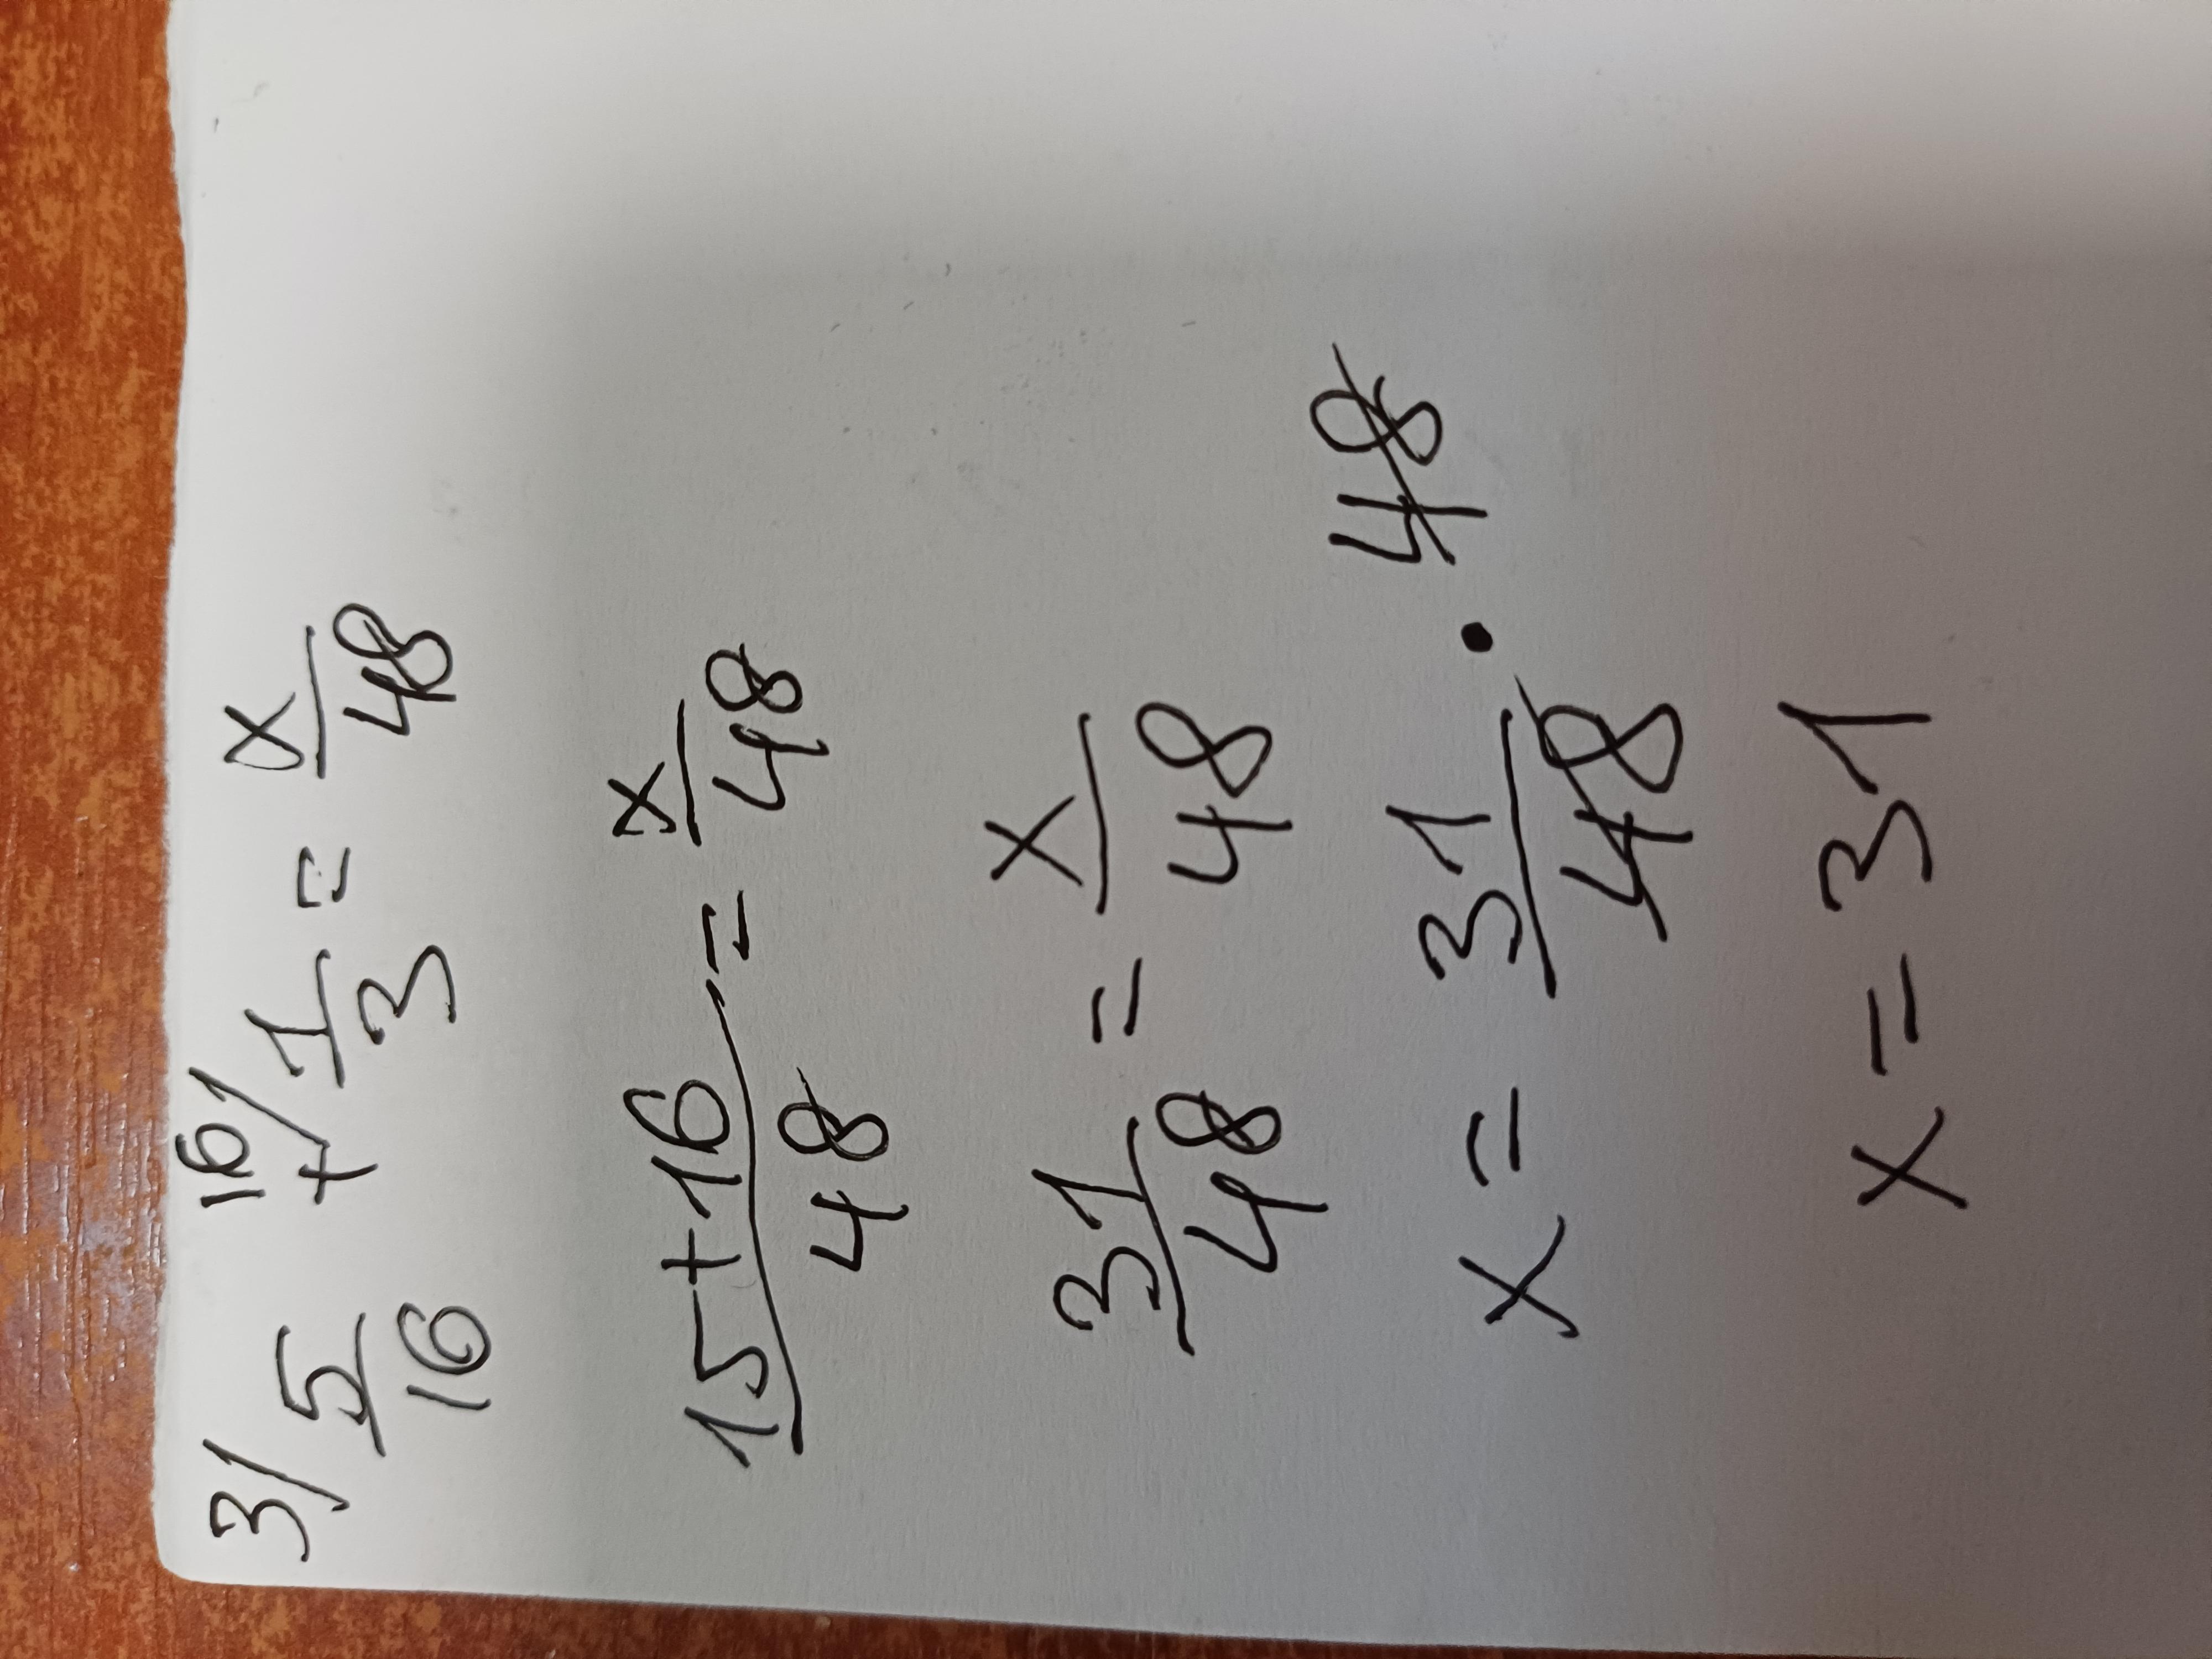 3/ 5/16 + 16/ 1/3 = x/48
15+16/48 = x/48
31/48 = x/48
x = 31/48 · 48
x = 31